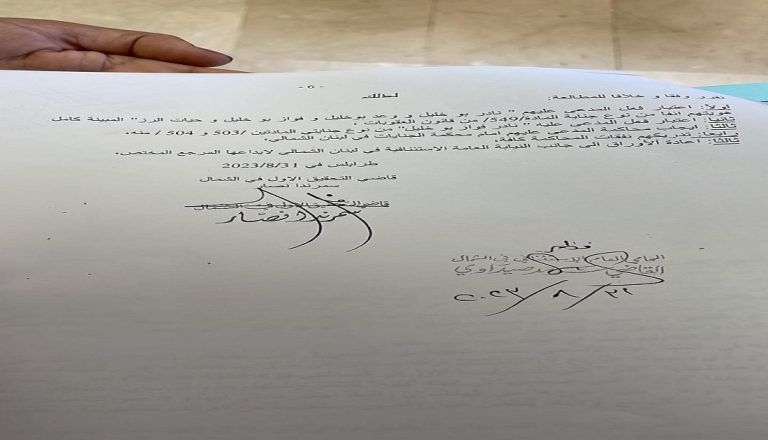 - 6 -
لذلك
نقرر وفقا و خلافا للمطالعة:
اولا: اعتبار فعل المدعى عليهم " نادر بو خليل و وعد بوخليل و فواز بو خليل و حيات الرز" المبينة كامل
هويتهم آنفا من نوع جناية المادة/549/ من قانون العقوبات .
ثانيا: اعتبار فعل المدعى عليه " نادر فواز بو خليل" من نوع جنايتي المادتين /503 و 504 / منه.
ثالثا: ايجاب محاكمة المدعى عليهم امام محكمة الجنايات في لبنان الشمالي.
رابعا: تدريكهم نفقات المحاكمة كافة
ثالثا: اعادة الأوراق الى جانب النيابة العامة الاستئنافية في لبنان الشمالي لايداعها المرجع المختص.
طرابلس في 2023/8/31
قاضي التحقيق الاول في الشمال
سمرندا نصار
قاضي التحقيق الاول في الشمال
سمرندا نصار
المحامي العام الاستئنافي في الشمال
القاضي صيداوي
٢٠٢٣/٨/٣١